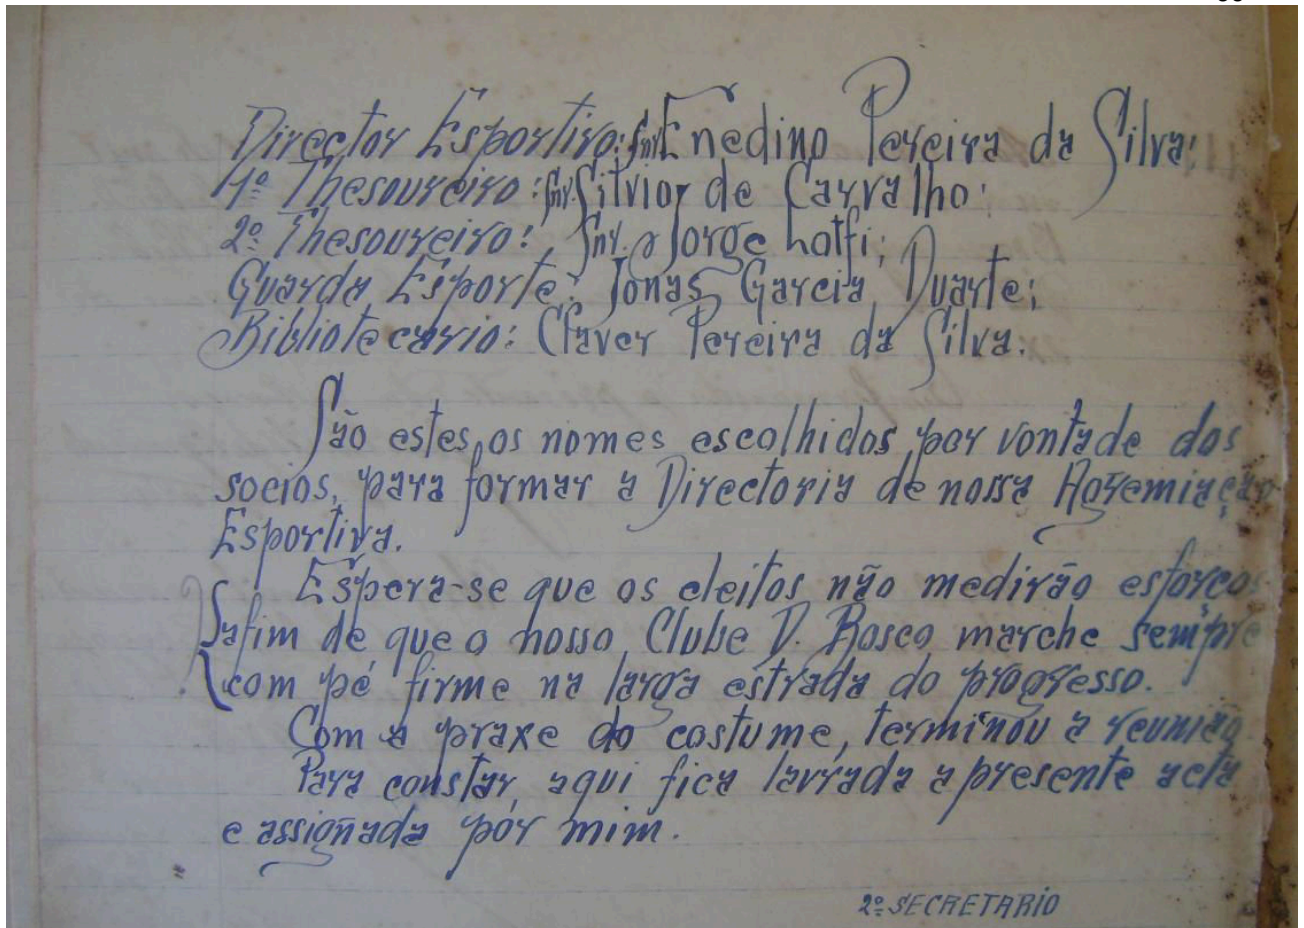 Director Esportivo: Snr. Enedino Pereira da Silva;
1º Thesoureiro: Snr. Silvio de Carvalho;
2º Thesoureiro: Snr. Jorge Lotfi;
Guarda Esporte: Jonas Garcia Duarte;
Bibliotecario: Claver Pereira da Silva.
São estes, os nomes escolhidos por vontade dos
socios, para formar a Directoria de nossa Agremiação
Esportiva.
Espera-se que os eleitos não medirão esforços
afim de que o nosso Clube D. Bosco marche sempre
com pé firme na larga estrada do progresso.
Com a praxe do costume, terminou a reunião
Para constar, aqui fica lavrada a presente acta
e assignada por mim.
2º SECRETARIO